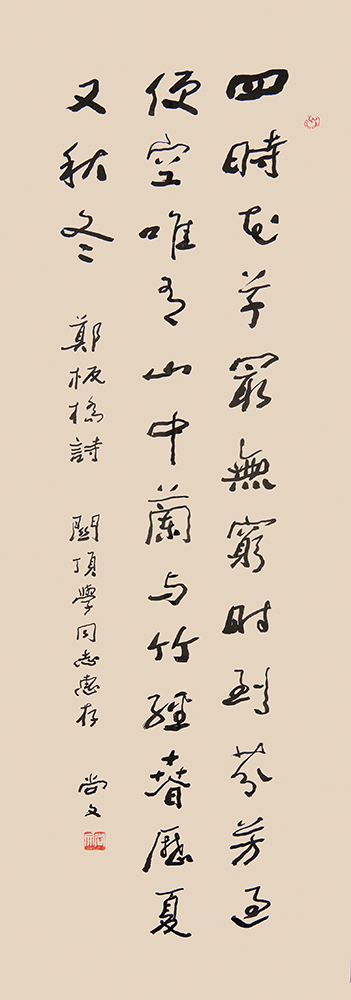 四時花草最無窮时到芬芳过
便空唯有山中蘭与竹經春歷夏
又秋冬 鄭板橋詩 關頂學同志惠存 尚文